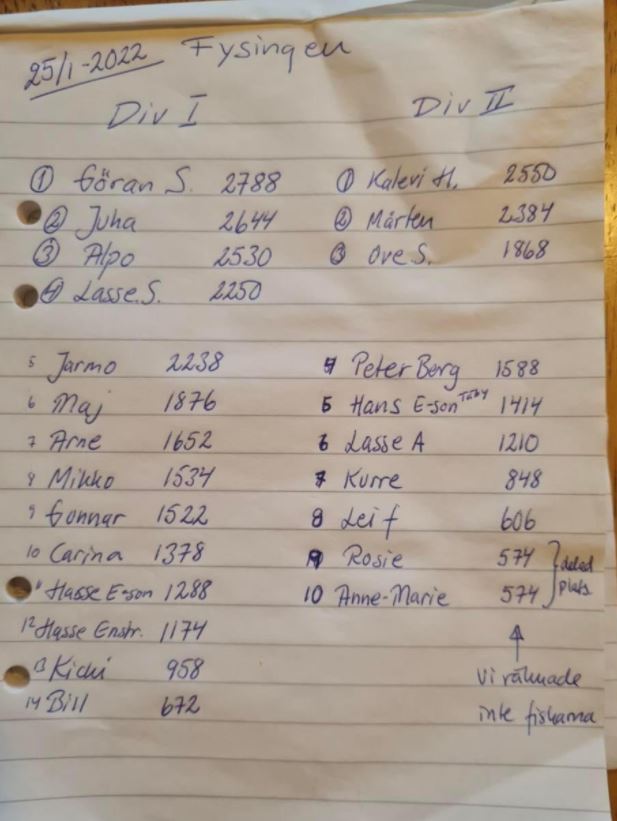 25/1-2022 Fysingen
Div I
① Göran S. 2788
② Juha 2644
③ Alpo 2530
④ Lasse.S. 2250
5 Jarmo 2238
6 Maj 1876
7 Arne 1652
8 Mikko 1534
9 Gunnar 1522
10 Carina 1378
11 Hasse E-son 1288
12 Hasse Enstr. 1174
13 Kicki 958
14 Bill 672
Div II
① Kalevi H. 2550
② Mårten 2384
③ Ove S. 1868
4 Peter Berg 1588
5 Hans E-son Täby 1414
6 Lasse A 1210
7 Kurre 848
8 Leif 606
9 Rosie 574
10 Anne-Marie 574
delad
plats
Vi räknade
inte fiskarna